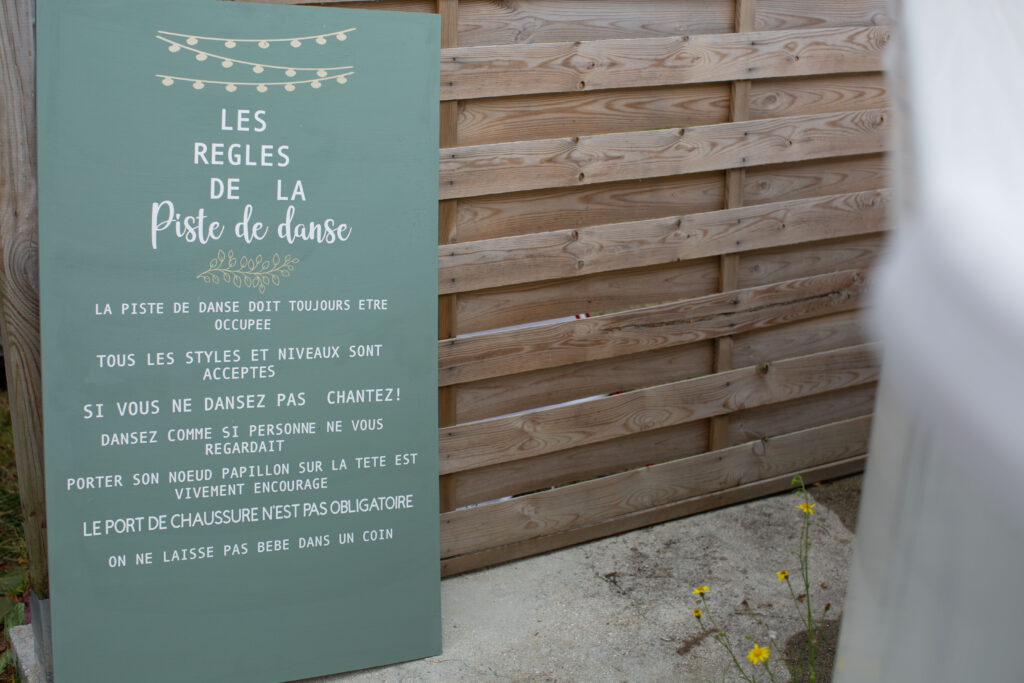 LES
REGLES
DE LA
Piste de danse
LA PISTE DE DANSE DOIT TOUJOURS ETRE
OCCUPEE
TOUS LES STYLES ET NIVEAUX SONT
ACCEPTES
SI VOUS NE DANSEZ PAS CHANTEZ!
DANSEZ COMME SI PERSONNE NE VOUS
REGARDAIT
PORTER SON NOEUD PAPILLON SUR LA TETE EST
VIVEMENT ENCOURAGE
LE PORT DE CHAUSSURE N'EST PAS OBLIGATOIRE
ON NE LAISSE PAS BEBE DANS UN COIN